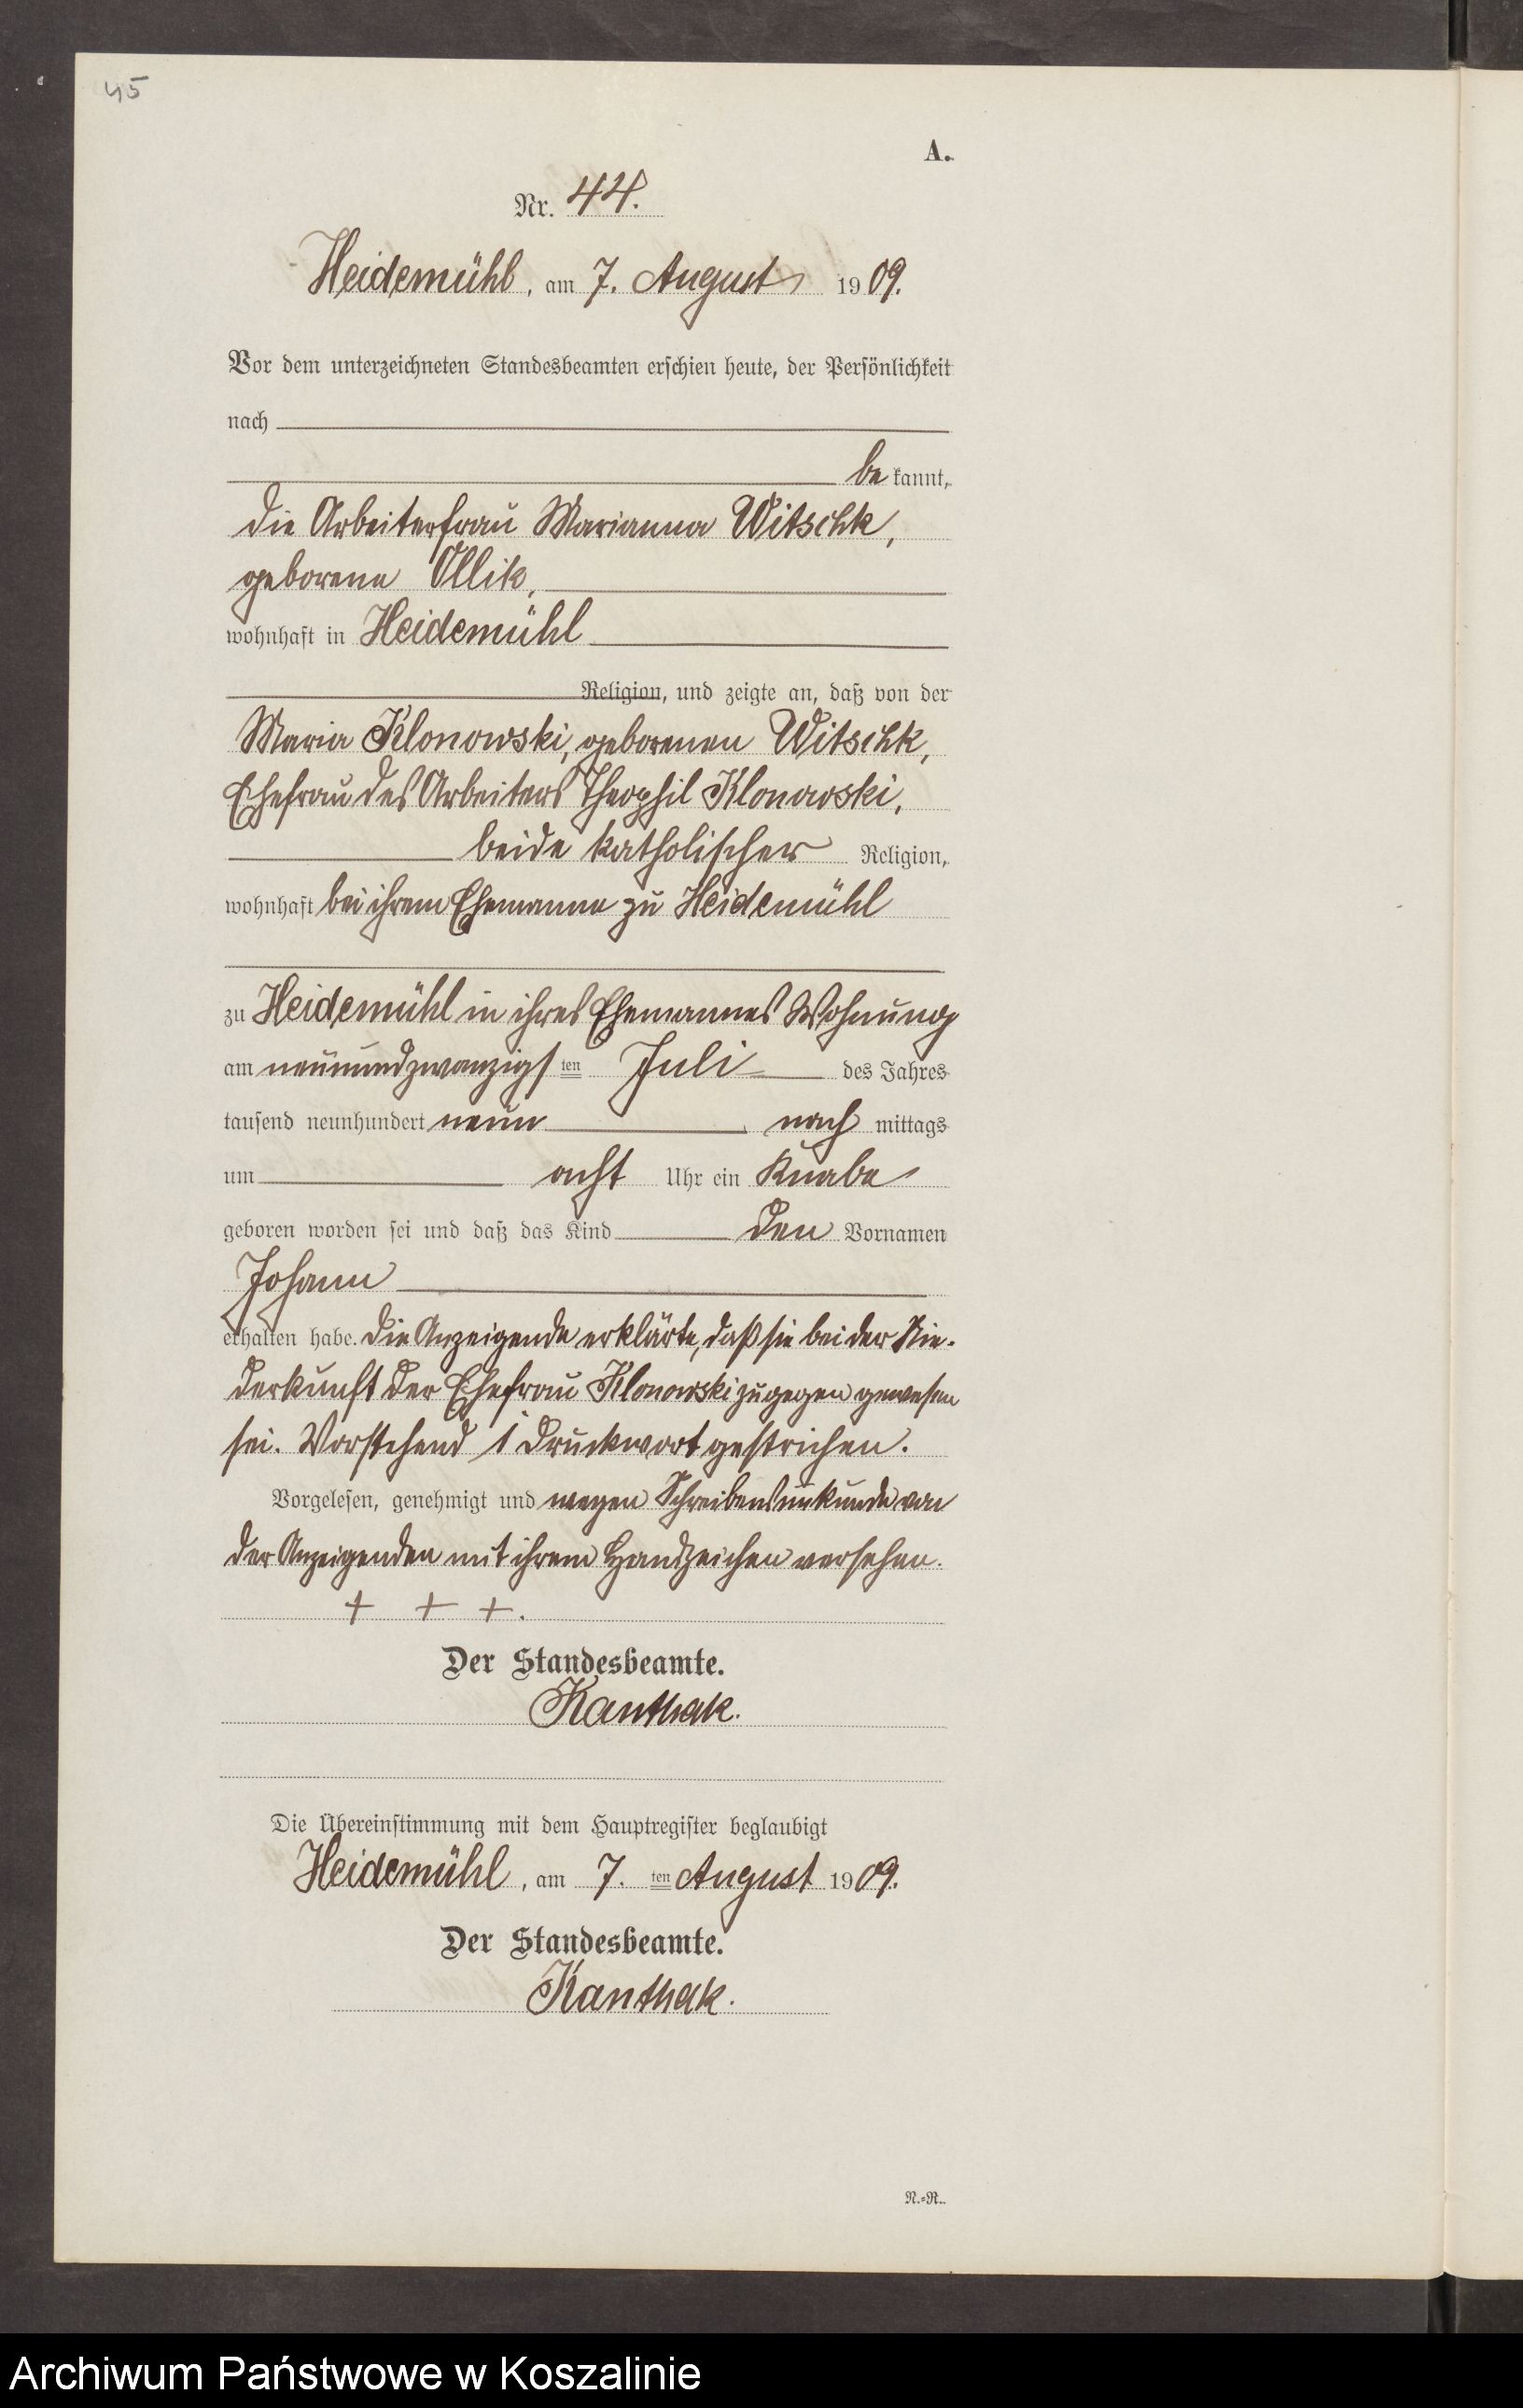 45
A.
Nr. 44.
Heidemühl, am 7. August 1909.
Vor dem unterzeichneten Standesbeamten erschien heute, der Persönlichkeit
nach
bekannt,
die Arbeiterfrau Marianna Witschk,
geborene Ollik,
wohnhaft in Heidemühl
Religion, und zeigte an, daß von der
Maria Klonowski, geborenen Witschk,
Ehefrau des Arbeiters Theophil Klonowski,
beide katholischer Religion,
wohnhaft bei ihrem Ehemanne zu Heidemühl
zu Heidemühl in ihres Ehemannes Wohnung
am neunundzwanzigsten Juli des Jahres
tausend neunhundert neun nachmittags
um acht Uhr ein Knabe
geboren worden sei und daß das Kind den Vornamen
Johann
erhalten habe. Die Anzeigende erklärte, daß sie bei der Nie-
derkunft der Ehefrau Klonowski zugegen gewesen
sei. Vorstehend 1 Druckwort gestrichen.
Vorgelesen, genehmigt und wegen Schreibensunkunde von
der Anzeigenden mit ihrem Handzeichen versehen.
+ + +.
Der Standesbeamte.
Kanthak.
Die Übereinstimmung mit dem Hauptregister beglaubigt
Heidemühl, am 7. ten August 1909.
Der Standesbeamte.
Kanthak.
N.=R.
Archiwum Państwowe w Koszalinie